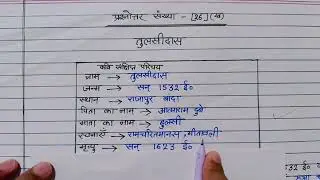 प्रश्नोत्तर संख्या - [26] (ख)
तुलसीदास
कवि संक्षिप्त परिचय
नाम → तुलसीदास
जन्म → सन् 1532 ई०
स्थान → राजापुर बांदा
पिता का नाम → आत्माराम दुबे
माता का नाम → हुलसी
रचनाएँ → रामचरितमानस, गीतावली
मृत्यु → सन् 1623 ई०
532 ई०